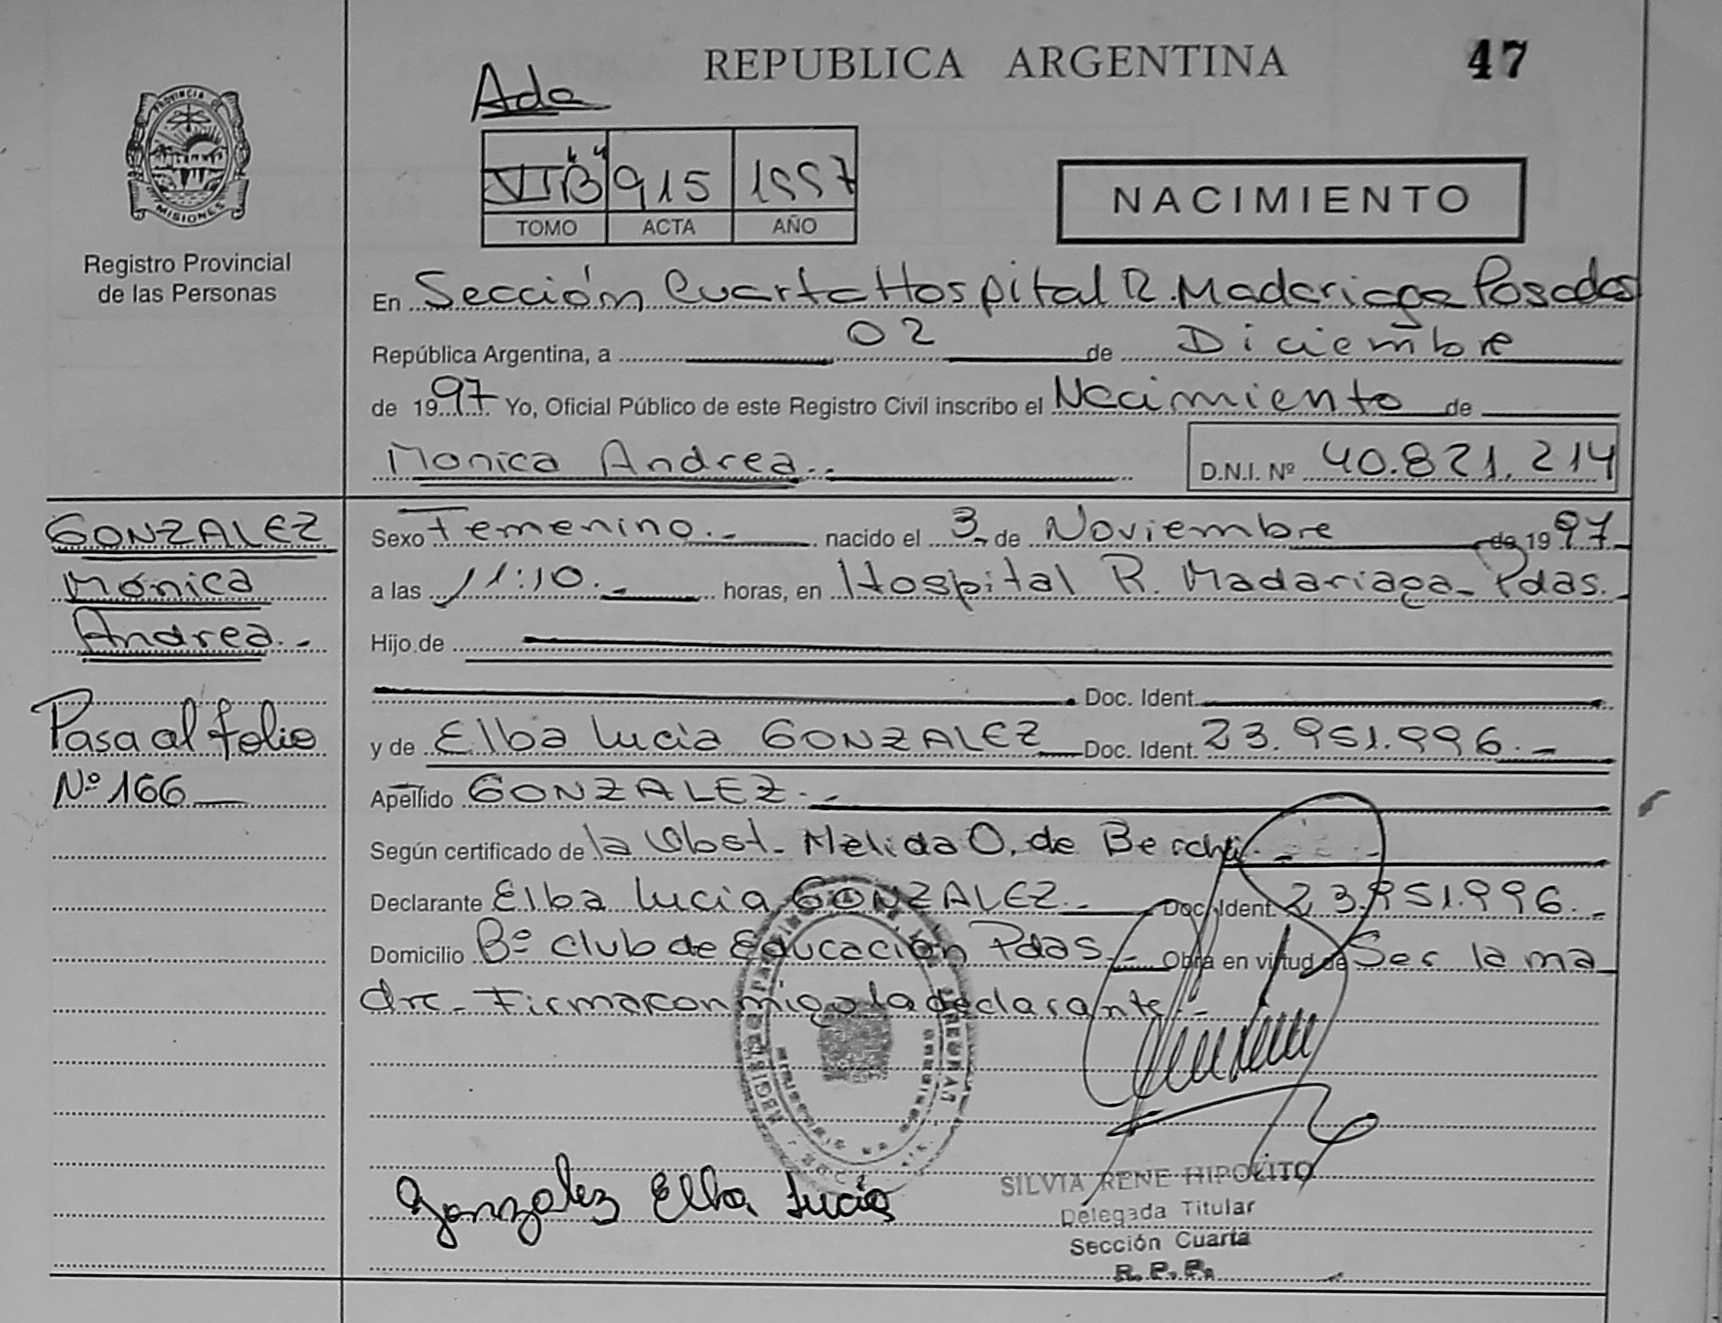 REPUBLICA ARGENTINA 47
Ada
PROVINCIA D
MISIONES
Registro Provincial
de las Personas
VII "B" 915 1997
TOMO ACTA AÑO
NACIMIENTO
En Sección Cuarta Hospital R. Madariaga Posadas
República Argentina, a 02 de Diciembre
de 1997. Yo, Oficial Público de este Registro Civil inscribo el Nacimiento de
Monica Andrea.- D.N.I. Nº 40.821.214
GONZALEZ
Mónica
Andrea.-
Pasa al folio
Nº 166
Sexo Femenino.- nacido el 3 de Noviembre de 1997
a las 11:10.- horas, en Hospital R. Madariaga- Pdas.-
Hijo de
Doc. Ident.
y de Elba Lucia GONZALEZ Doc. Ident. 23.951.996.-
Apellido GONZALEZ.-
Según certificado de la Obst. Melida O. de
Declarante Elba Lucia GONZALEZ.- Doc. Ident. 23.951.996.-
Domicilio Bº Club de Educación Pdas.- Obra en virtud de Ser la ma
dre.- Firma con migo la declarante.-
Gonzalez Elba Lucia
SILVIA RENE HIPOLITO
Delegada Titular
Sección Cuarta
R. P. P.